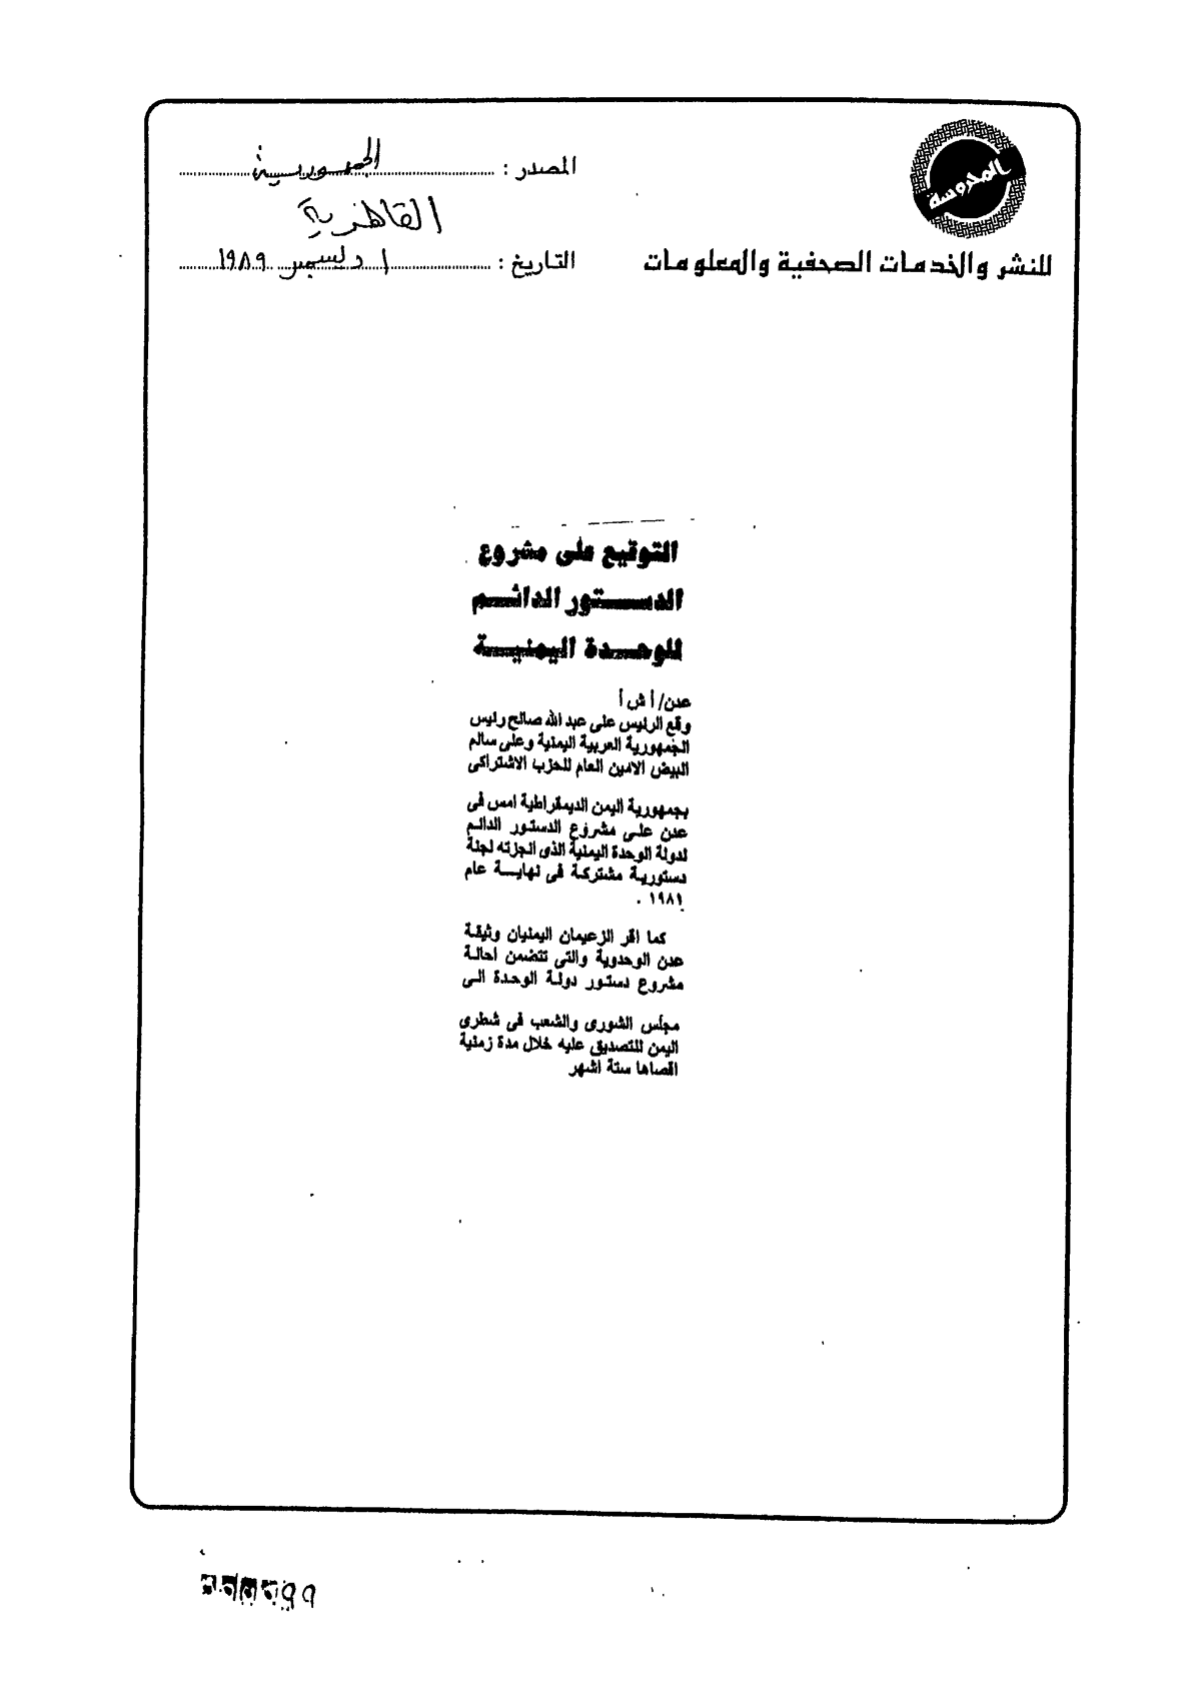 المحروسة
للنشر والخدمات الصحفية والمعلومات
المصدر : الجمهورية
القاهرية
التاريخ : ١ ديسمبر ١٩٨٩
التوقيع على مشروع
الدستور الدائم
للوحدة اليمنية
عدن/ أ ش أ
وقع الرئيس على عبد الله صالح رئيس
الجمهورية العربية اليمنية وعلى سالم
البيض الامين العام للحزب الاشتراكى
بجمهورية اليمن الديمقراطية امس فى
عدن على مشروع الدستور الدائم
لدولة الوحدة اليمنية الذى انجزته لجنة
دستورية مشتركة فى نهاية عام
١٩٨١ .
كما اقر الزعيمان اليمنيان وثيقة
عدن الوحدوية والتى تتضمن احالة
مشروع دستور دولة الوحدة الى
مجلس الشورى والشعب فى شطرى
اليمن للتصديق عليه خلال مدة زمنية
اقصاها ستة اشهر